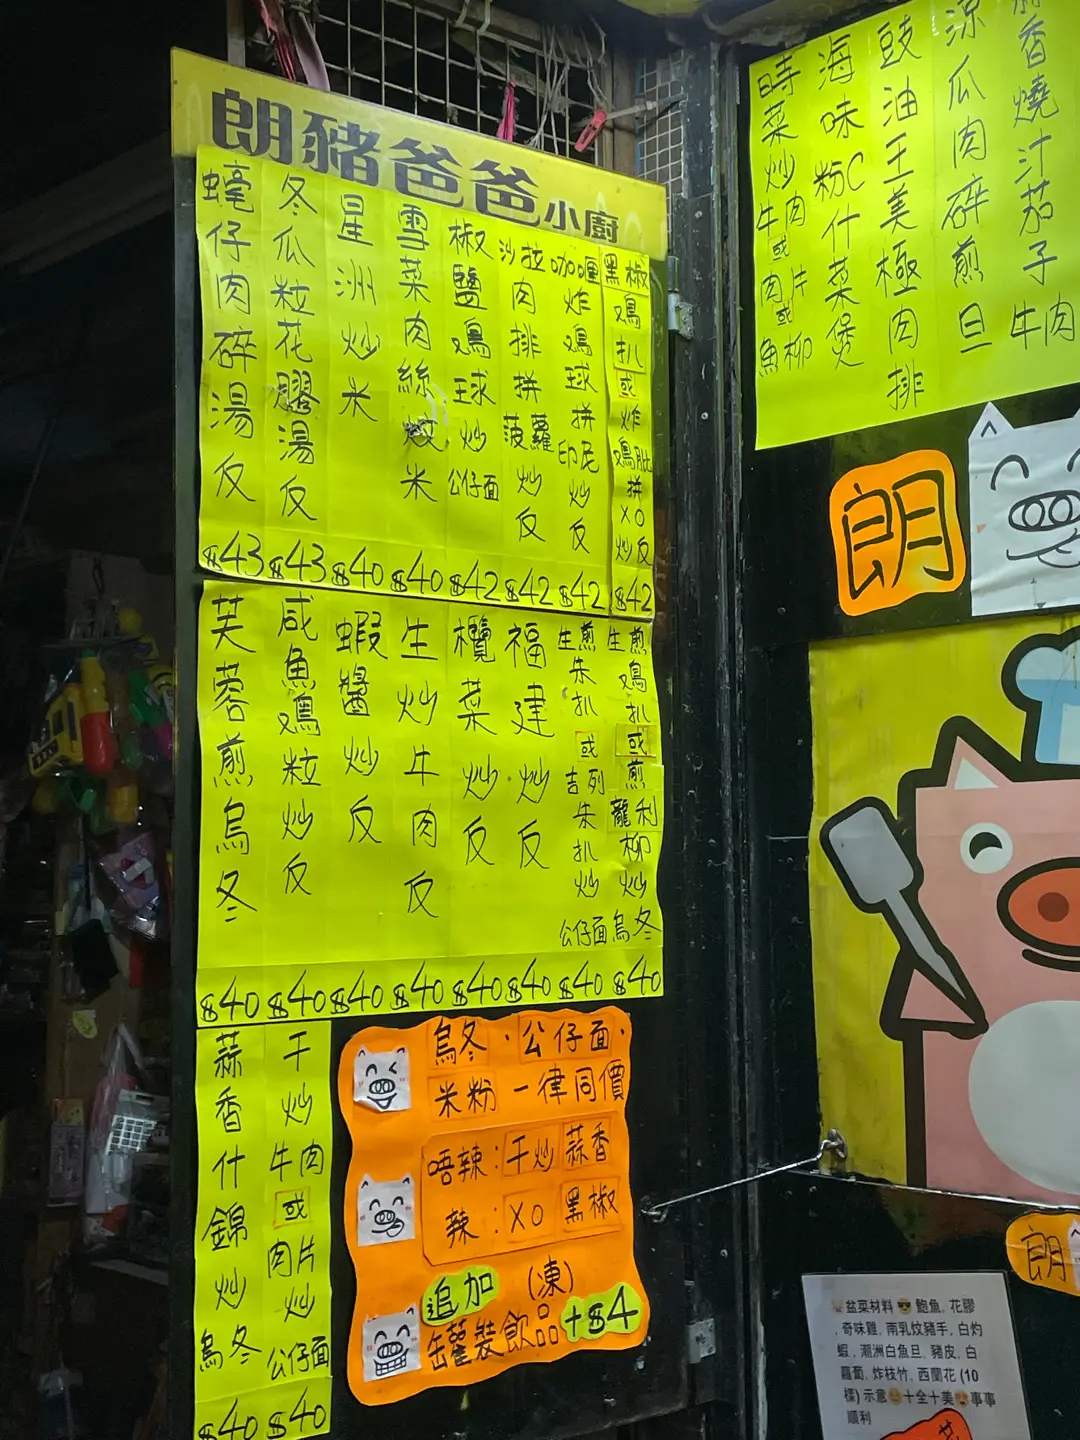 朗豬爸爸小廚
蠔仔肉碎湯反 $43
冬瓜粒花膠湯反 $43
星洲炒米 $40
雪菜肉絲炆米 $40
椒鹽鳮球炒公仔面 $42
沙拉肉排拼菠蘿炒反 $42
咖喱炸鳮球拼印尼炒反 $42
黑椒鳮扒或炸鳮肶拼XO炒反 $42
芙蓉煎烏冬 $40
咸魚鳮粒炒反 $40
蝦醬炒反 $40
生炒牛肉反 $40
欖菜炒反 $40
福建炒反 $40
生煎朱扒或吉列朱扒炒公仔面 $40
生煎鳮扒或煎龍利柳炒烏冬 $40
蒜香什錦炒烏冬 $40
干炒牛肉或肉片炒公仔面 $40
烏冬·公仔面·
米粉一律同價
唔辣:干炒 蒜香
辣:XO 黑椒
追加(凍)
罐裝飲品+$4
時菜炒牛肉或肉片或魚柳
海味粉C什菜煲
豉油王美極肉排
涼瓜肉碎煎旦
蒜香燒汁茄子牛肉
朗
朗
盆菜材料😎鮑魚, 花膠
, 奇味雞, 南乳炆豬手, 白灼
蝦, 潮洲白魚旦, 豬皮, 白
蘿蔔, 炸枝竹, 西蘭花 (10
樣) 示意😊十全十美😍事事
順利